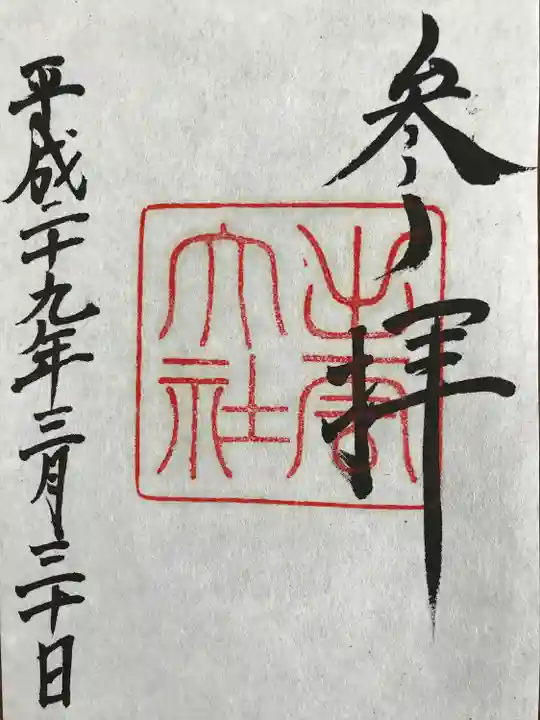 参拝
出雲
大社
平成二十九年三月三十日